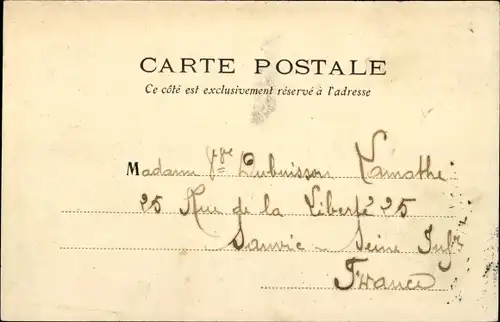 CARTE POSTALE
Ce côté est exclusivement réservé à l'adresse
Madame Vve Dubuisson Lamothe
25 Rue de la Liberté 25
Sanvic - Seine Infre
France